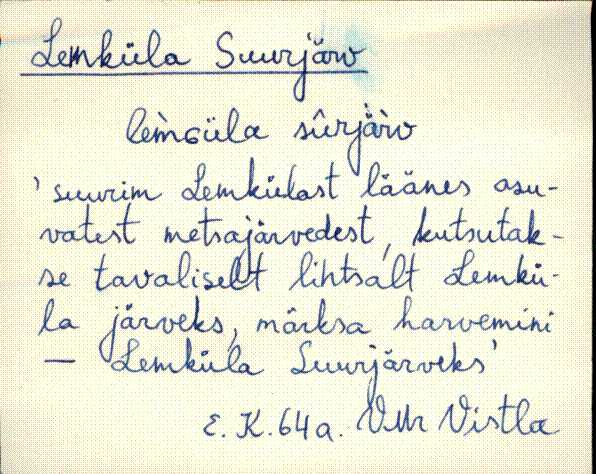 Lemküla Suurjärv
lem̀ɢüla sûrjäv̀
'suurim Lemkülast läänes asu-
vatest metsajärvedest, kutsutak-
se tavaliselt lihtsalt Lemkü-
la järveks, märksa harvemini
— Lemküla Suurjärveks'
E. K. 64 a. VMr Vistla